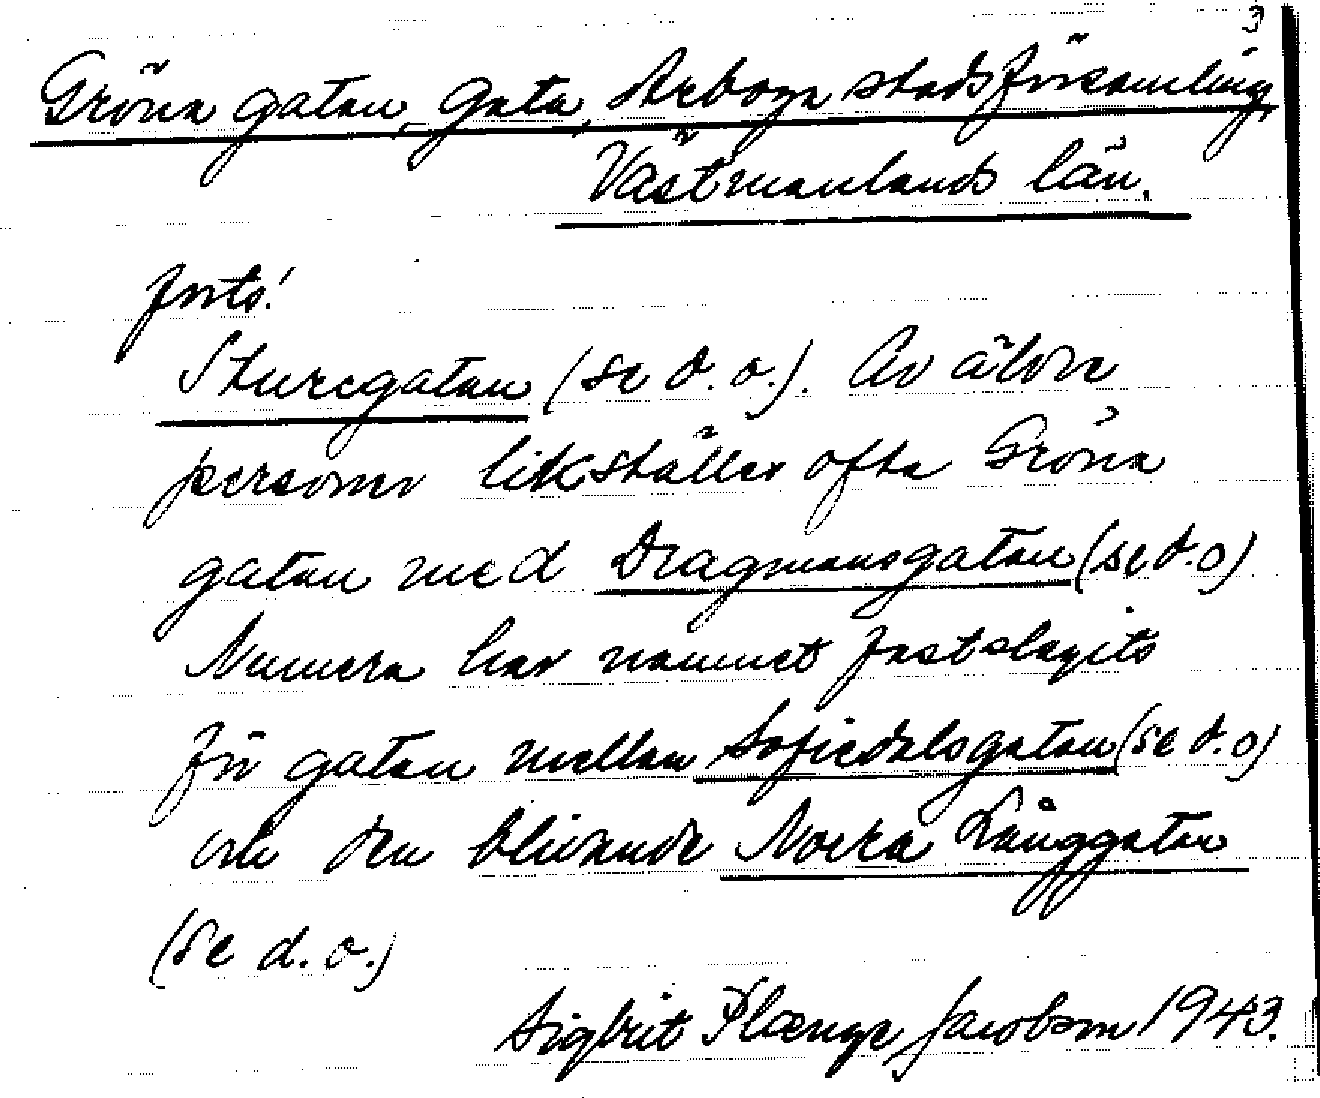 3
Gröna gatan, gata, Arboga stadsförsamling,
Västmanlands län.
forts!
Sturegatan (se d. o.). Av äldre
personer likställes ofta Gröna
gatan med Dragmansgatan (se d. o)
Numera har namnet fastslagits
för gatan mellan Sofiedalsgatan (se d. o)
och den blivande Norra Långgatan
(se d. o.)
Sigbrit Plænge Jacobson 1943.